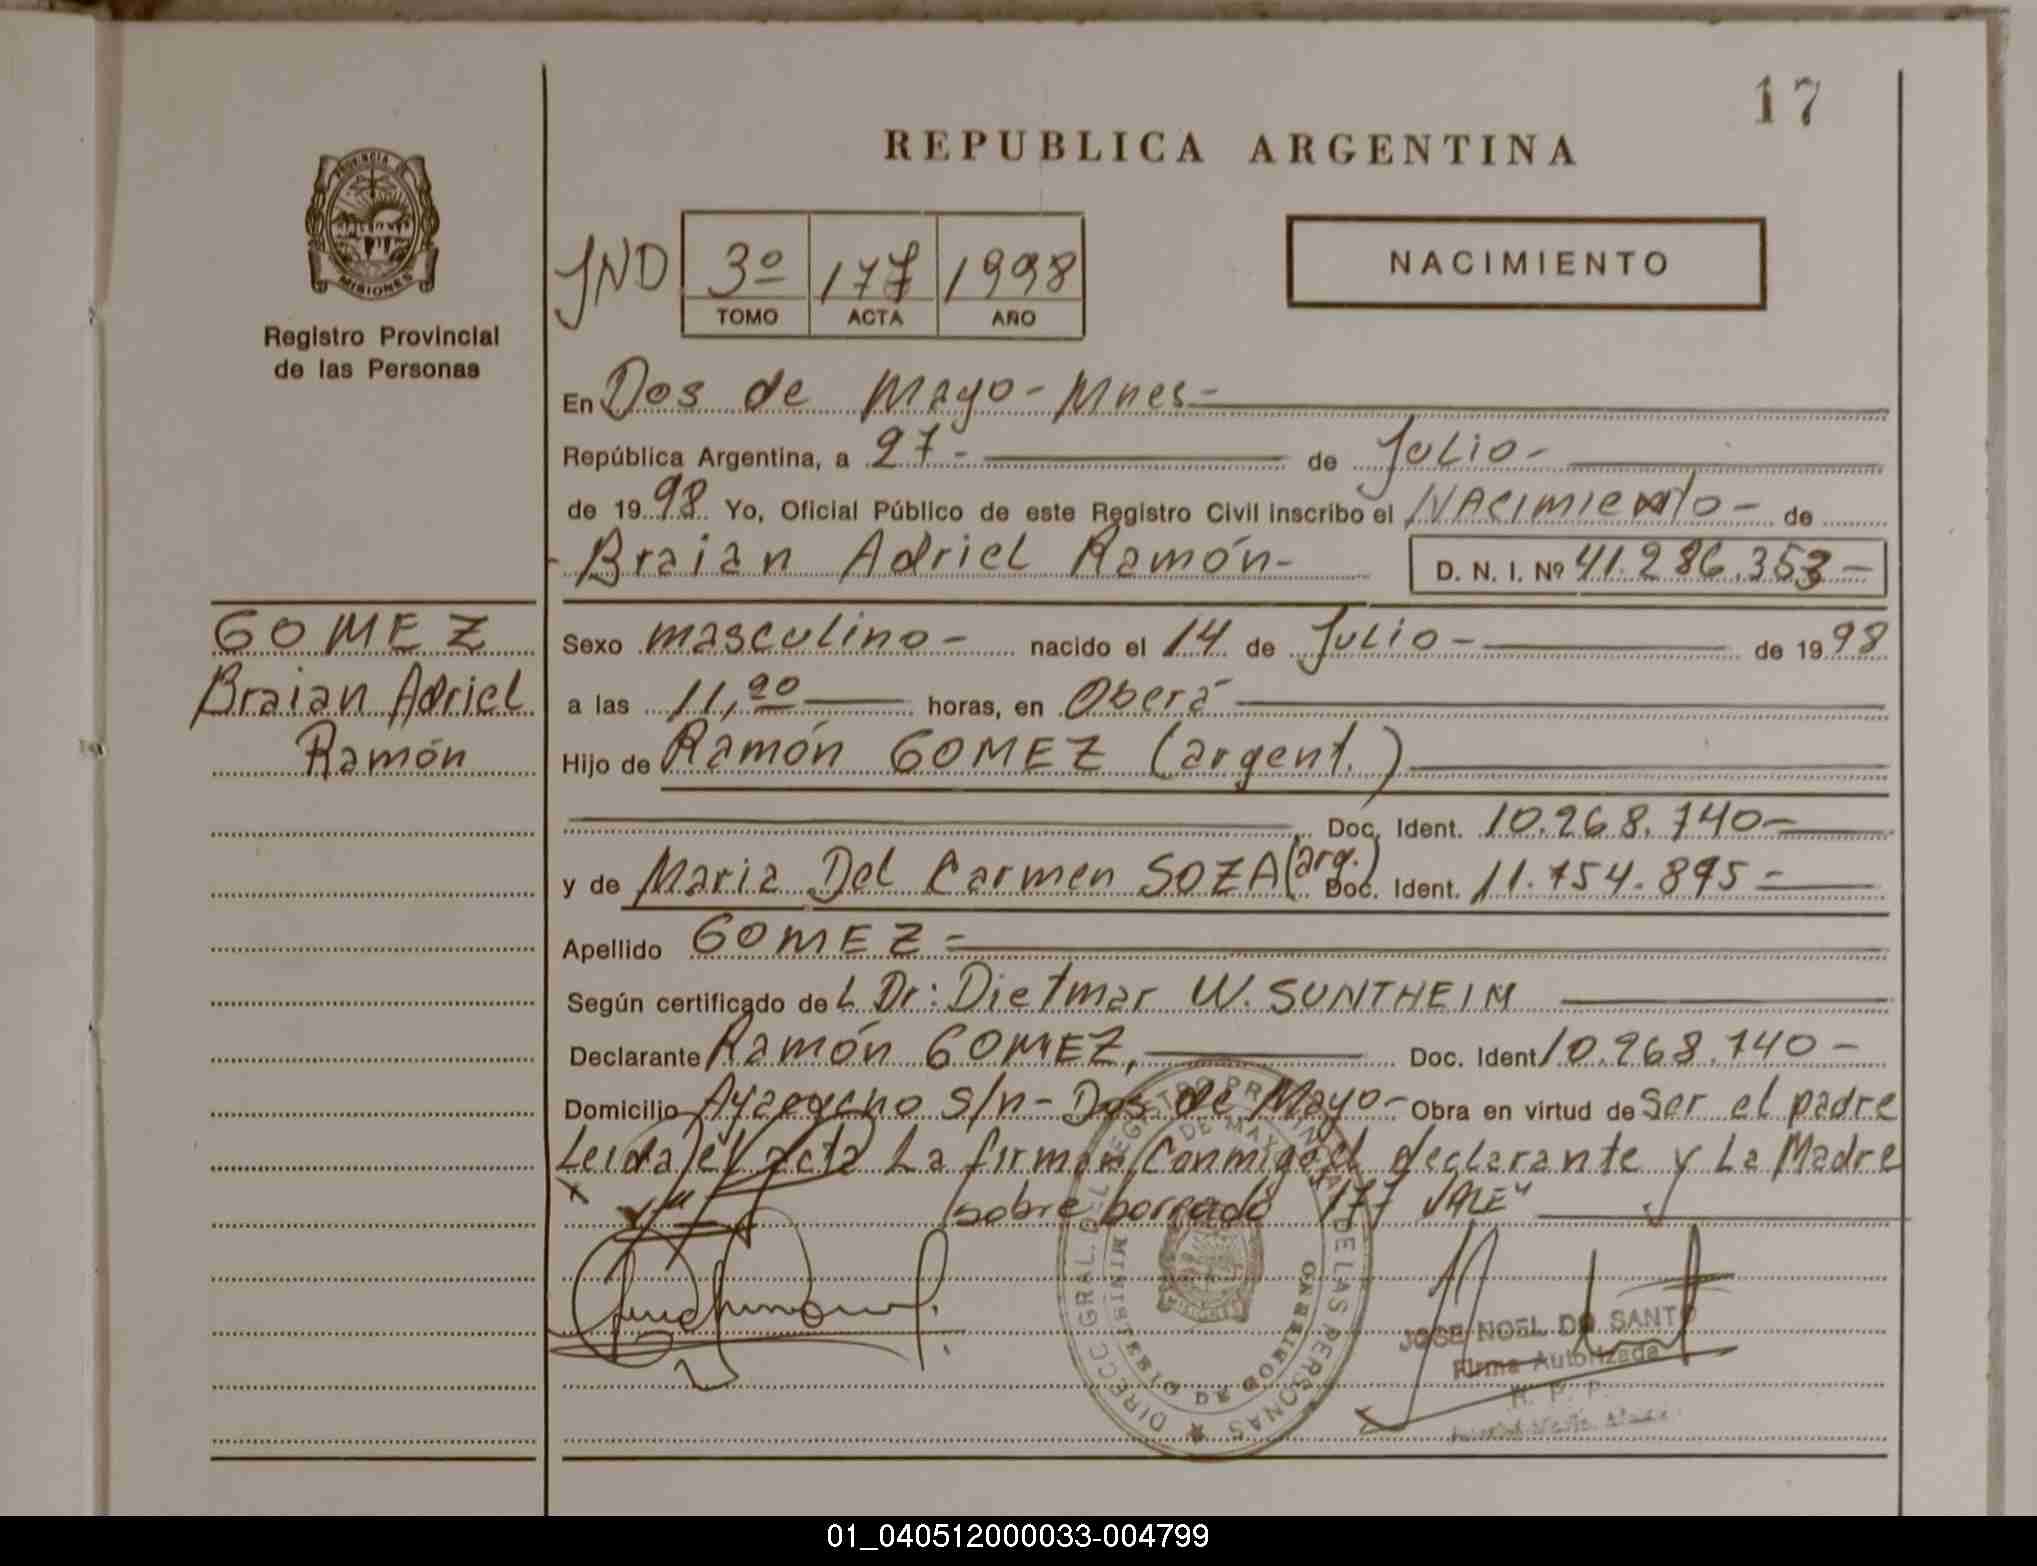 17
REPUBLICA ARGENTINA
PROVINCIA DE
MISIONES
Registro Provincial
de las Personas
JND 3º 177 1998
TOMO ACTA AÑO
NACIMIENTO
En Dos de Mayo - Mnes -
República Argentina, a 27 - de Julio -
de 1998 Yo, Oficial Público de este Registro Civil inscribo el NACimiento - de
- Braian Adriel Ramón - D. N. I. Nº 41.286.353 -
GOMEZ
Braian Adriel
Ramón
Sexo masculino - nacido el 14 de Julio - de 1998
a las 11,20 horas, en Oberá
Hijo de Ramón GOMEZ (argent.)
Doc. Ident. 10.268.740 -
y de Maria Del Carmen SOZA (arg.) Doc. Ident. 11.754.895 -
Apellido GOMEZ -
Según certificado de L Dr: Dietmar W. SUNTHEIM
Declarante Ramón GOMEZ, Doc. Ident 10.268.740 -
Domicilio Ayacucho s/n - Dos de Mayo - Obra en virtud de Ser el padre
Leida el acta La firman Conmigo el declarante y La Madre
sobre borrado 177 VALE"
DIRECC. GRAL. DEL REGISTRO PROVINCIAL DE LAS PERSONAS
DE MAYO
MINISTERIO DE GOBIERNO
MISIONES
JOSE NOEL DO SANTO
Firma Autorizada
R. P. P.
01_040512000033-004799